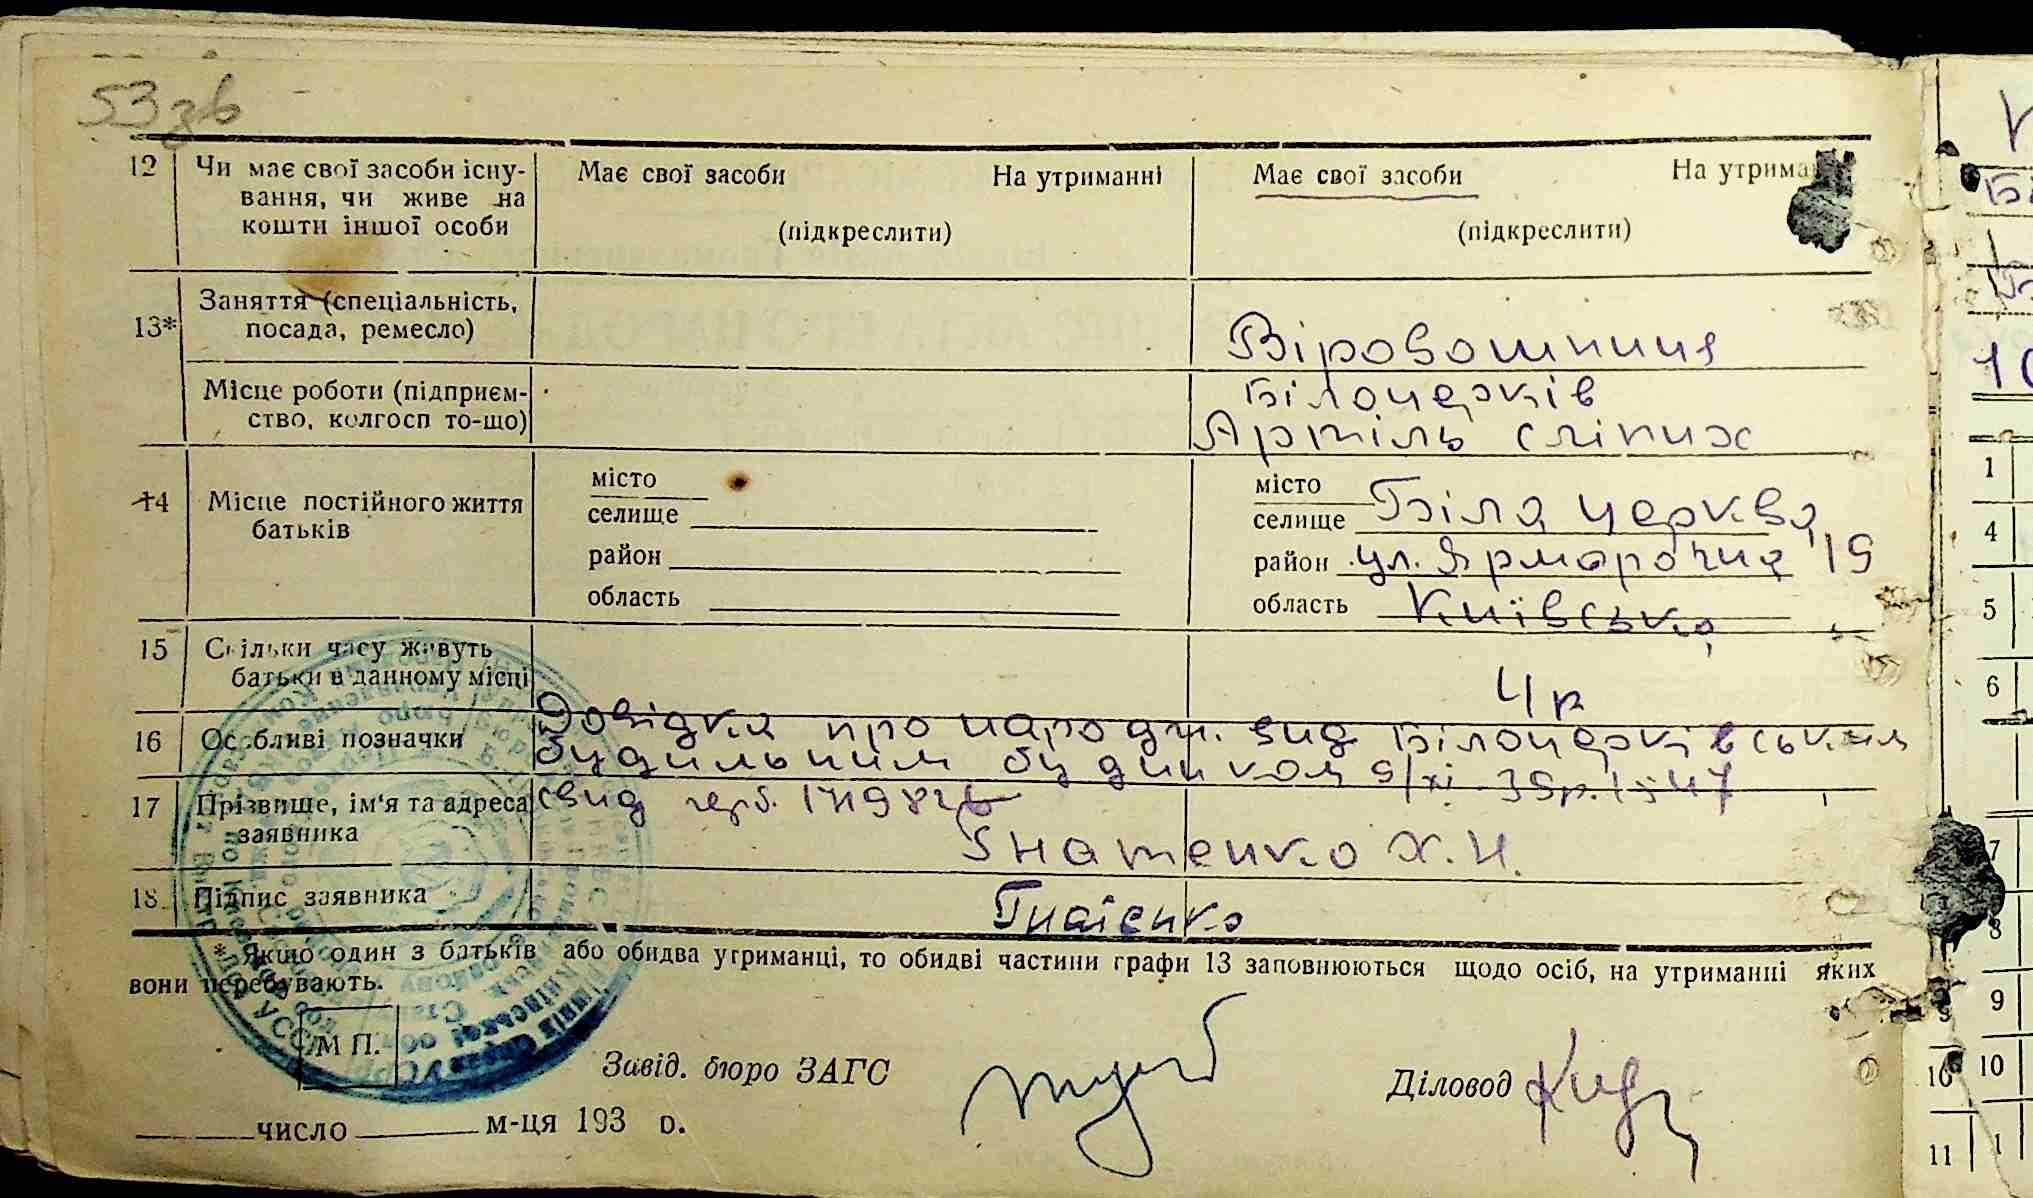 53 зв
12 Чи має свої засоби існу- Має свої засоби На утриманні Має свої засоби На утрима
вання, чи живе на
кошти іншої особи (підкреслити) (підкреслити)
Заняття (спеціальність,
13* посада, ремесло) Віровошниця
Місце роботи (підприєм- Білоцерків
ство, колгосп то-що) Артіль сліпих
14 Місце постійного життя місто місто
батьків селище селище Біла церква
район район ул. Ярмарочна 19
область область Київська
15 Скільки часу живуть
батьки в данному місці 4 р
16 Особливі позначки Довідка про народж. вид Білоцерківським
будильним будинком 9/xi - 39р.
17 Прізвище, ім'я та адреса свид
заявника Гнатенко Х. И.
18. Підпис заявника Гнатенко
* Якщо один з батьків або обидва утриманці, то обидві частини графи 13 заповнюються щодо осіб, на утриманні яких
вони перебувають.
М П.
Завід. бюро ЗАГС Діловод
число м-ця 193 р.
1
4
5
6
7
8
9
10 10
11 1